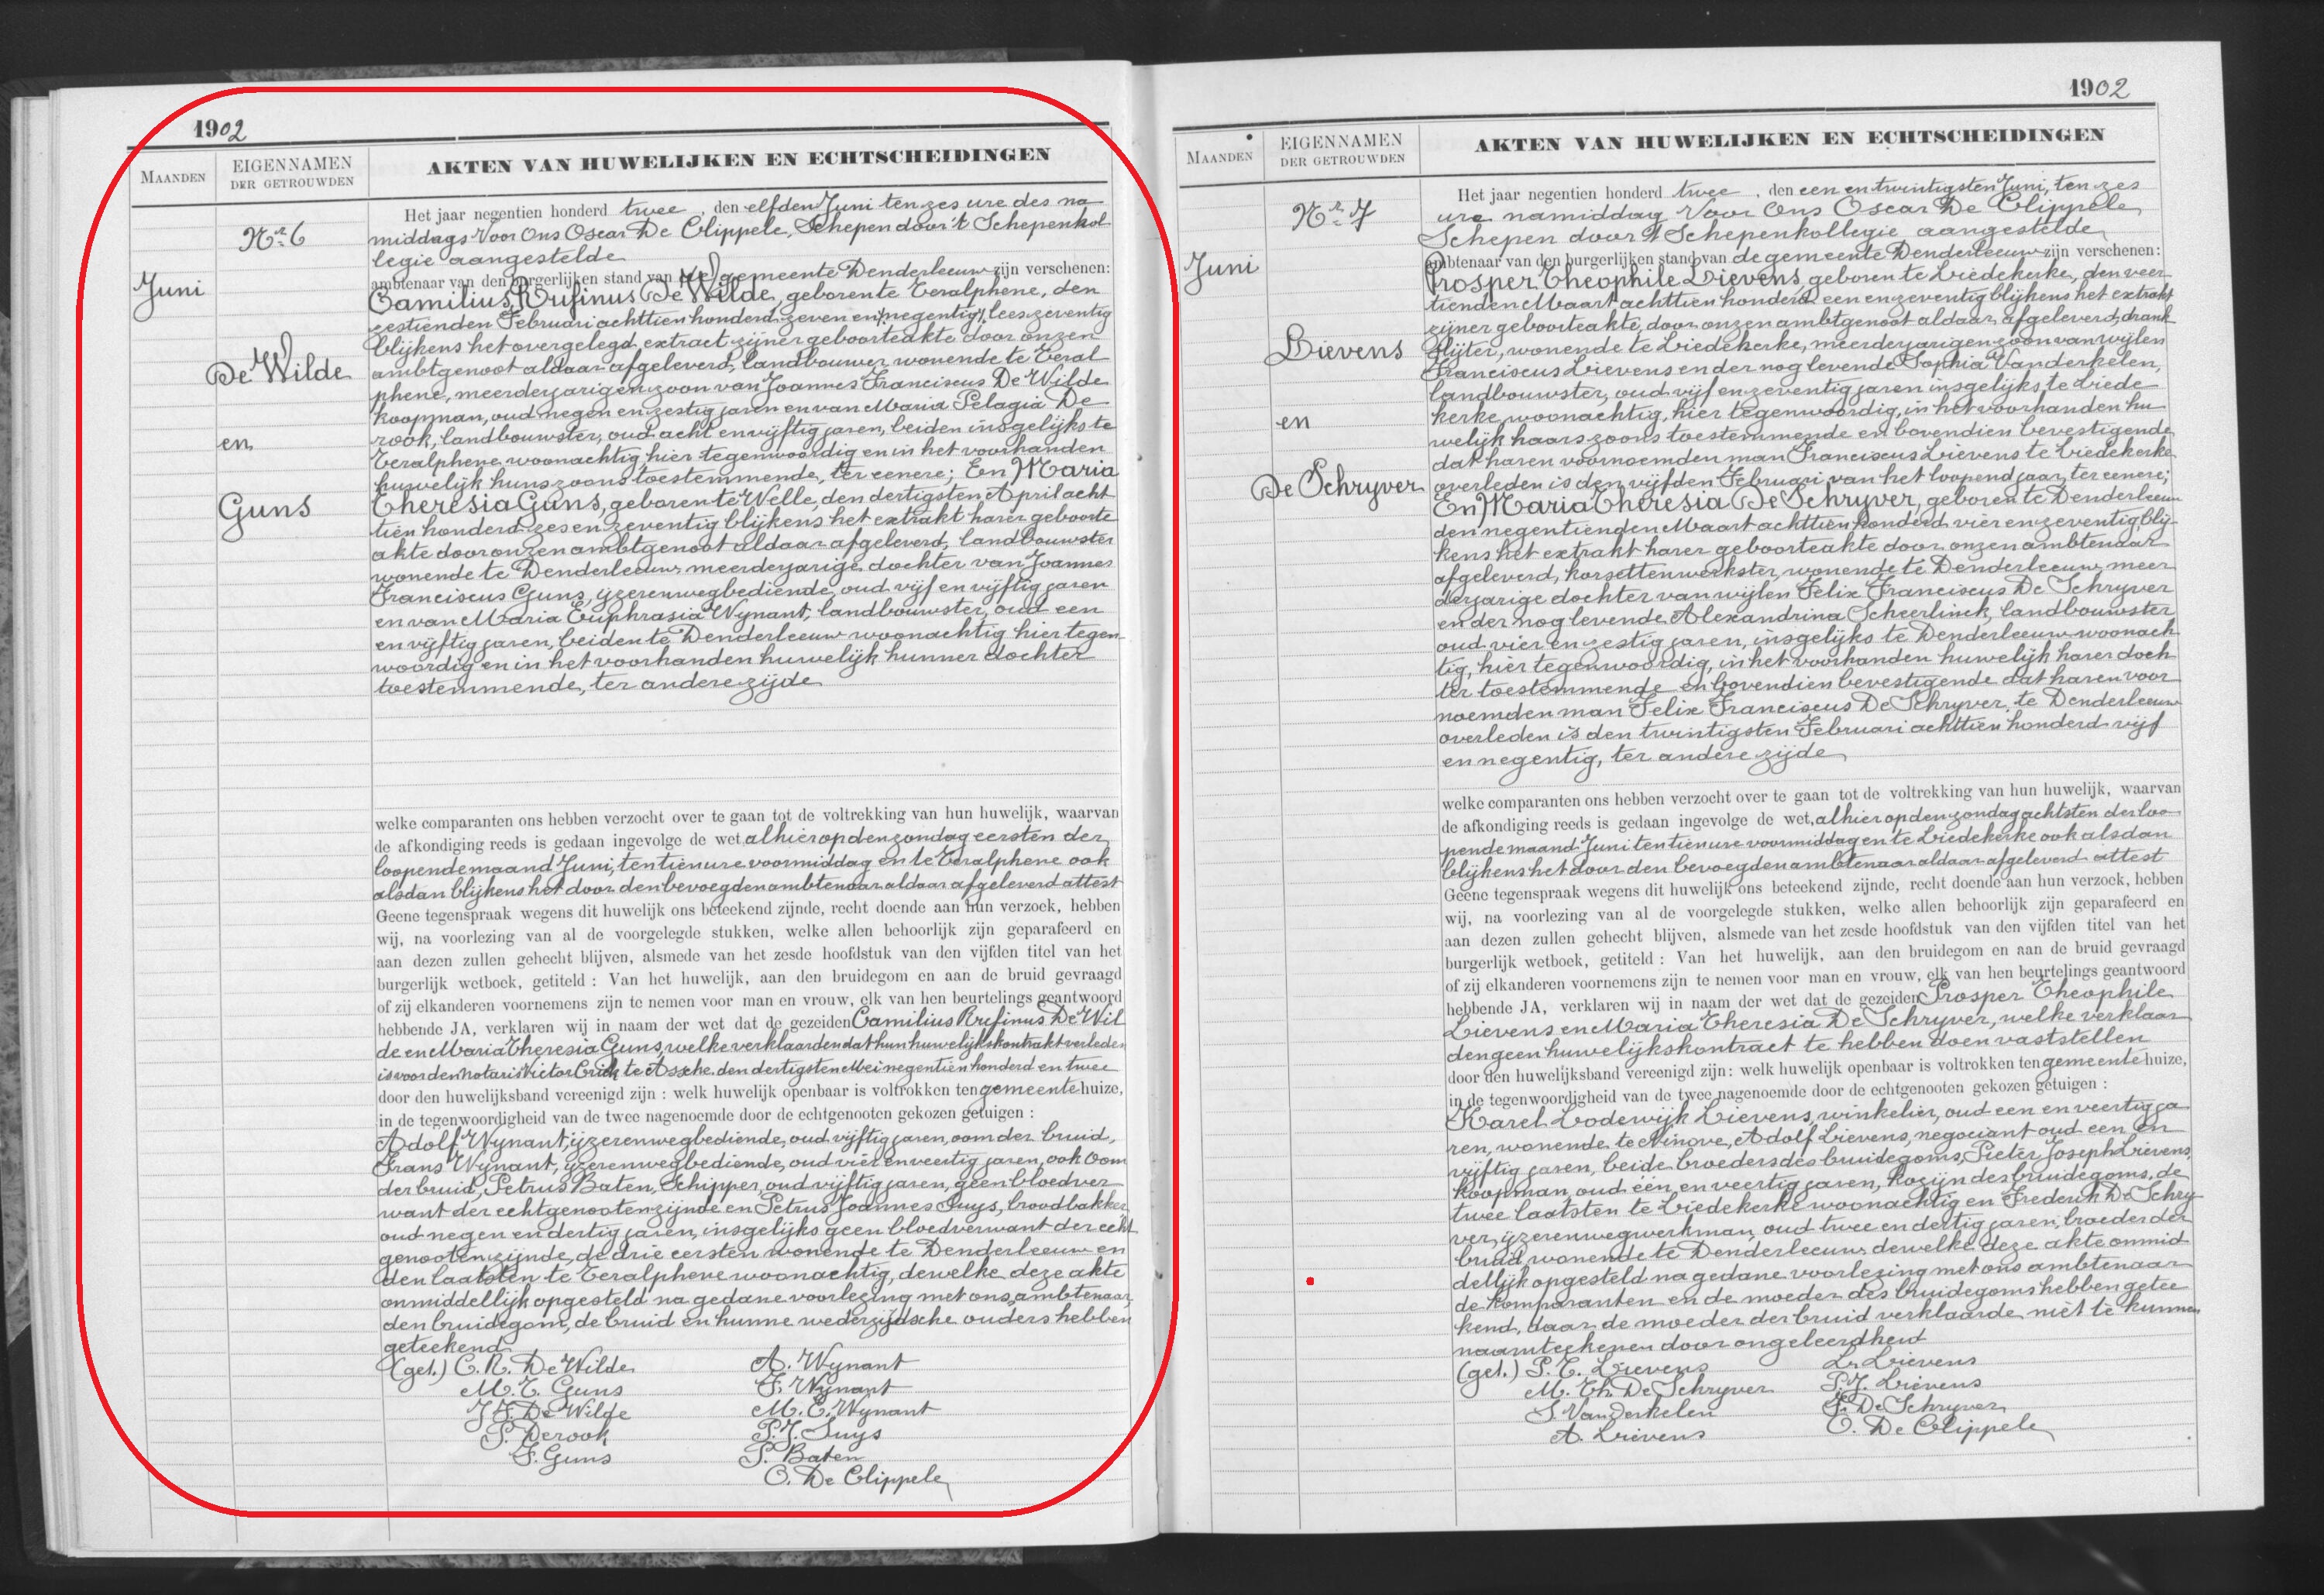 1902
MAANDEN
EIGENNAMEN
DER GETROUWDEN
AKTEN VAN HUWELIJKEN EN ECHTSCHEIDINGEN
Nr. 6
Juni
De Wilde
en
Guns
Het jaar negentien honderd twee, den elfden Juni ten zes ure des na
middags Voor Ons Oscar De Clippele, Schepen door 't Schepenkol
legie aangestelde
ambtenaar van den burgerlijken stand van de gemeente Denderleeuw zijn verschenen:
Camilius Rufinus De Wilde, geboren te Teralphene, den
zestienden Februari achttien honderd zeven en negentig lees zeventig
blijkens het overgelegd extract zijner geboorteakte door onzen
ambtgenoot aldaar afgeleverd, landbouwer wonende te Teral
phene, meerderjarigen zoon van Joannes Franciscus De Wilde
koopman, oud negen en zestig jaren en van Maria Pelagia De
rook, landbouwster, oud acht en vijftig jaren, beiden insgelijks te
Teralphene woonachtig hier tegenwoordig en in het voorhanden
huwelijk huns zoons toestemmende, ter eenere; En Maria
Theresia Guns, geboren te Welle, den dertigsten April acht
tien honderd zes en zeventig blijkens het extrakt harer geboorte
akte door onzen ambtgenoot aldaar afgeleverd, landbouwster
wonende te Denderleeuw meerderjarige dochter van Joannes
Franciscus Guns, ijzerenwegbediende, oud vijf en vijftig jaren
en van Maria Euphrasia Wynant, landbouwster, oud een
en vijftig jaren, beiden te Denderleeuw woonachtig hier tegen
woordig en in het voorhanden huwelijk hunner dochter
toestemmende, ter andere zijde
welke comparanten ons hebben verzocht over te gaan tot de voltrekking van hun huwelijk, waarvan
de afkondiging reeds is gedaan ingevolge de wet alhier op den zondag eersten der
loopende maand Juni, ten tien ure voormiddag en te Teralphene ook
alsdan blijkens het door den bevoegden ambtenaar aldaar afgeleverd attest
Geene tegenspraak wegens dit huwelijk ons beteekend zijnde, recht doende aan hun verzoek, hebben
wij, na voorlezing van al de voorgelegde stukken, welke allen behoorlijk zijn geparafeerd en
aan dezen zullen gehecht blijven, alsmede van het zesde hoofdstuk van den vijfden titel van het
burgerlijk wetboek, getiteld : Van het huwelijk, aan den bruidegom en aan de bruid gevraagd
of zij elkanderen voornemens zijn te nemen voor man en vrouw, elk van hen beurtelings geantwoord
hebbende JA, verklaren wij in naam der wet dat de gezeiden Camilius Rufinus De Wil
de en Maria Theresia Guns, welke verklaarden dat hun huwelijkskontrakt verleden
is voor den Notaris Victor Crick te Assche den dertigsten Mei negentien honderd en twee
door den huwelijksband vereenigd zijn : welk huwelijk openbaar is voltrokken ten gemeentehuize,
in de tegenwoordigheid van de twee nagenoemde door de echtgenooten gekozen getuigen :
Adolf Wynant, ijzerenwegbediende, oud vijftig jaren, oom der bruid,
Frans Wynant, ijzerenwegbediende, oud vier en veertig jaren, ook oom
der bruid, Petrus Baten, Schipper, oud vijftig jaren, geen bloedver
want der echtgenooten zijnde en Petrus Joannes Suys, broodbakker
oud negen en dertig jaren, insgelijks geen bloedverwant der echt
genooten zijnde, de drie eersten wonende te Denderleeuw en
den laatsten te Teralphene woonachtig, dewelke deze akte
onmiddellijk opgesteld na gedane voorlezing met ons, ambtenaar,
den bruidegom, de bruid en hunne wederzijdsche ouders hebben
geteekend
(get.) C. R. De Wilde A. Wynant
M. T. Guns F. Wynant
J. F. De Wilde M. E. Wynant
P. Derook P. J. Suys
F. Guns P. Baten
O. De Clippele
1902
MAANDEN
EIGENNAMEN
DER GETROUWDEN
AKTEN VAN HUWELIJKEN EN ECHTSCHEIDINGEN
Nr. 7
Juni
Lievens
en
De Schryver
Het jaar negentien honderd twee, den een en twintigsten Juni, ten zes
ure namiddag Voor Ons Oscar De Clippele
Schepen door 't Schepenkollegie aangestelde
ambtenaar van den burgerlijken stand van de gemeente Denderleeuw zijn verschenen:
Prosper Theophile Lievens, geboren te Liedekerke, den veer
tienden Maart achttien honderd een en zeventig blijkens het extrakt
zijner geboorteakte, door onzen ambtgenoot aldaar afgeleverd, drank
slijter, wonende te Liedekerke, meerderjarigen zoon van wijlen
Franciscus Lievens en der nog levende Sophia Vanderkelen,
landbouwster, oud vijf en zeventig jaren insgelijks te Liede
kerke woonachtig, hier tegenwoordig, in het voorhanden hu
welijk haars zoons toestemmende en bovendien bevestigende
dat haren voornoemden man Franciscus Lievens te Liedekerke
overleden is den vijfden Februari van het loopend jaar, ter eenere;
En Maria Theresia De Schryver, geboren te Denderleeuw
den negentienden Maart achttien honderd vier en zeventig blij-
kens het extrakt harer geboorteakte door onzen ambtenaar
afgeleverd, korsettenwerkster, wonende te Denderleeuw meer
derjarige dochter van wijlen Felix Franciscus De Schryver
en der nog levende Alexandrina Scheerlinck, landbouwster
oud vier en zestig jaren, insgelijks te Denderleeuw woonach
tig, hier tegenwoordig, in het voorhanden huwelijk harer doch
ter toestemmende en bovendien bevestigende dat haren voor
noemden man Felix Franciscus De Schryver, te Denderleeuw
overleden is den twintigsten Februari achttien honderd vijf
en negentig, ter andere zijde
welke comparanten ons hebben verzocht over te gaan tot de voltrekking van hun huwelijk, waarvan
de afkondiging reeds is gedaan ingevolge de wet, alhier op den zondag achtsten der loo
pende maand Juni ten tien ure voormiddag en te Liedekerke ook alsdan
blijkens het door den bevoegden ambtenaar aldaar afgeleverd attest
Geene tegenspraak wegens dit huwelijk ons beteekend zijnde, recht doende aan hun verzoek, hebben
wij, na voorlezing van al de voorgelegde stukken, welke allen behoorlijk zijn geparafeerd en
aan dezen zullen gehecht blijven, alsmede van het zesde hoofdstuk van den vijfden titel van het
burgerlijk wetboek, getiteld : Van het huwelijk, aan den bruidegom en aan de bruid gevraagd
of zij elkanderen voornemens zijn te nemen voor man en vrouw, elk van hen beurtelings geantwoord
hebbende JA, verklaren wij in naam der wet dat de gezeiden Prosper Theophile
Lievens en Maria Theresia De Schryver, welke verklaar
den geen huwelijkskontract te hebben doen vaststellen
door den huwelijksband vereenigd zijn : welk huwelijk openbaar is voltrokken ten gemeentehuize,
in de tegenwoordigheid van de twee nagenoemde door de echtgenooten gekozen getuigen :
Karel Lodewijk Lievens, winkelier, oud een en veertig ja
ren, wonende te Ninove, Adolf Lievens, negociant oud een en
vijftig jaren, beide broeders des bruidegoms, Pieter Joseph Lievens,
koopman, oud één en veertig jaren, kozijn des bruidegoms, de
twee laatsten te Liedekerke woonachtig en Frederik De Schry
ver, ijzerenwegwerkman, oud twee en dertig jaren, broeder der
bruid, wonende te Denderleeuw, dewelke deze akte onmid
dellijk opgesteld na gedane voorlezing met ons ambtenaar
de komparanten en de moeder des bruidegoms hebben getee
kend, daar de moeder der bruid verklaarde niet te kunnen
naamteekenen door ongeleerdheid
(get.) P. T. Lievens L. Lievens
M. Th. De Schryver P. J. Lievens
S. Vanderkelen F. De Schryver
A. Lievens O. De Clippele